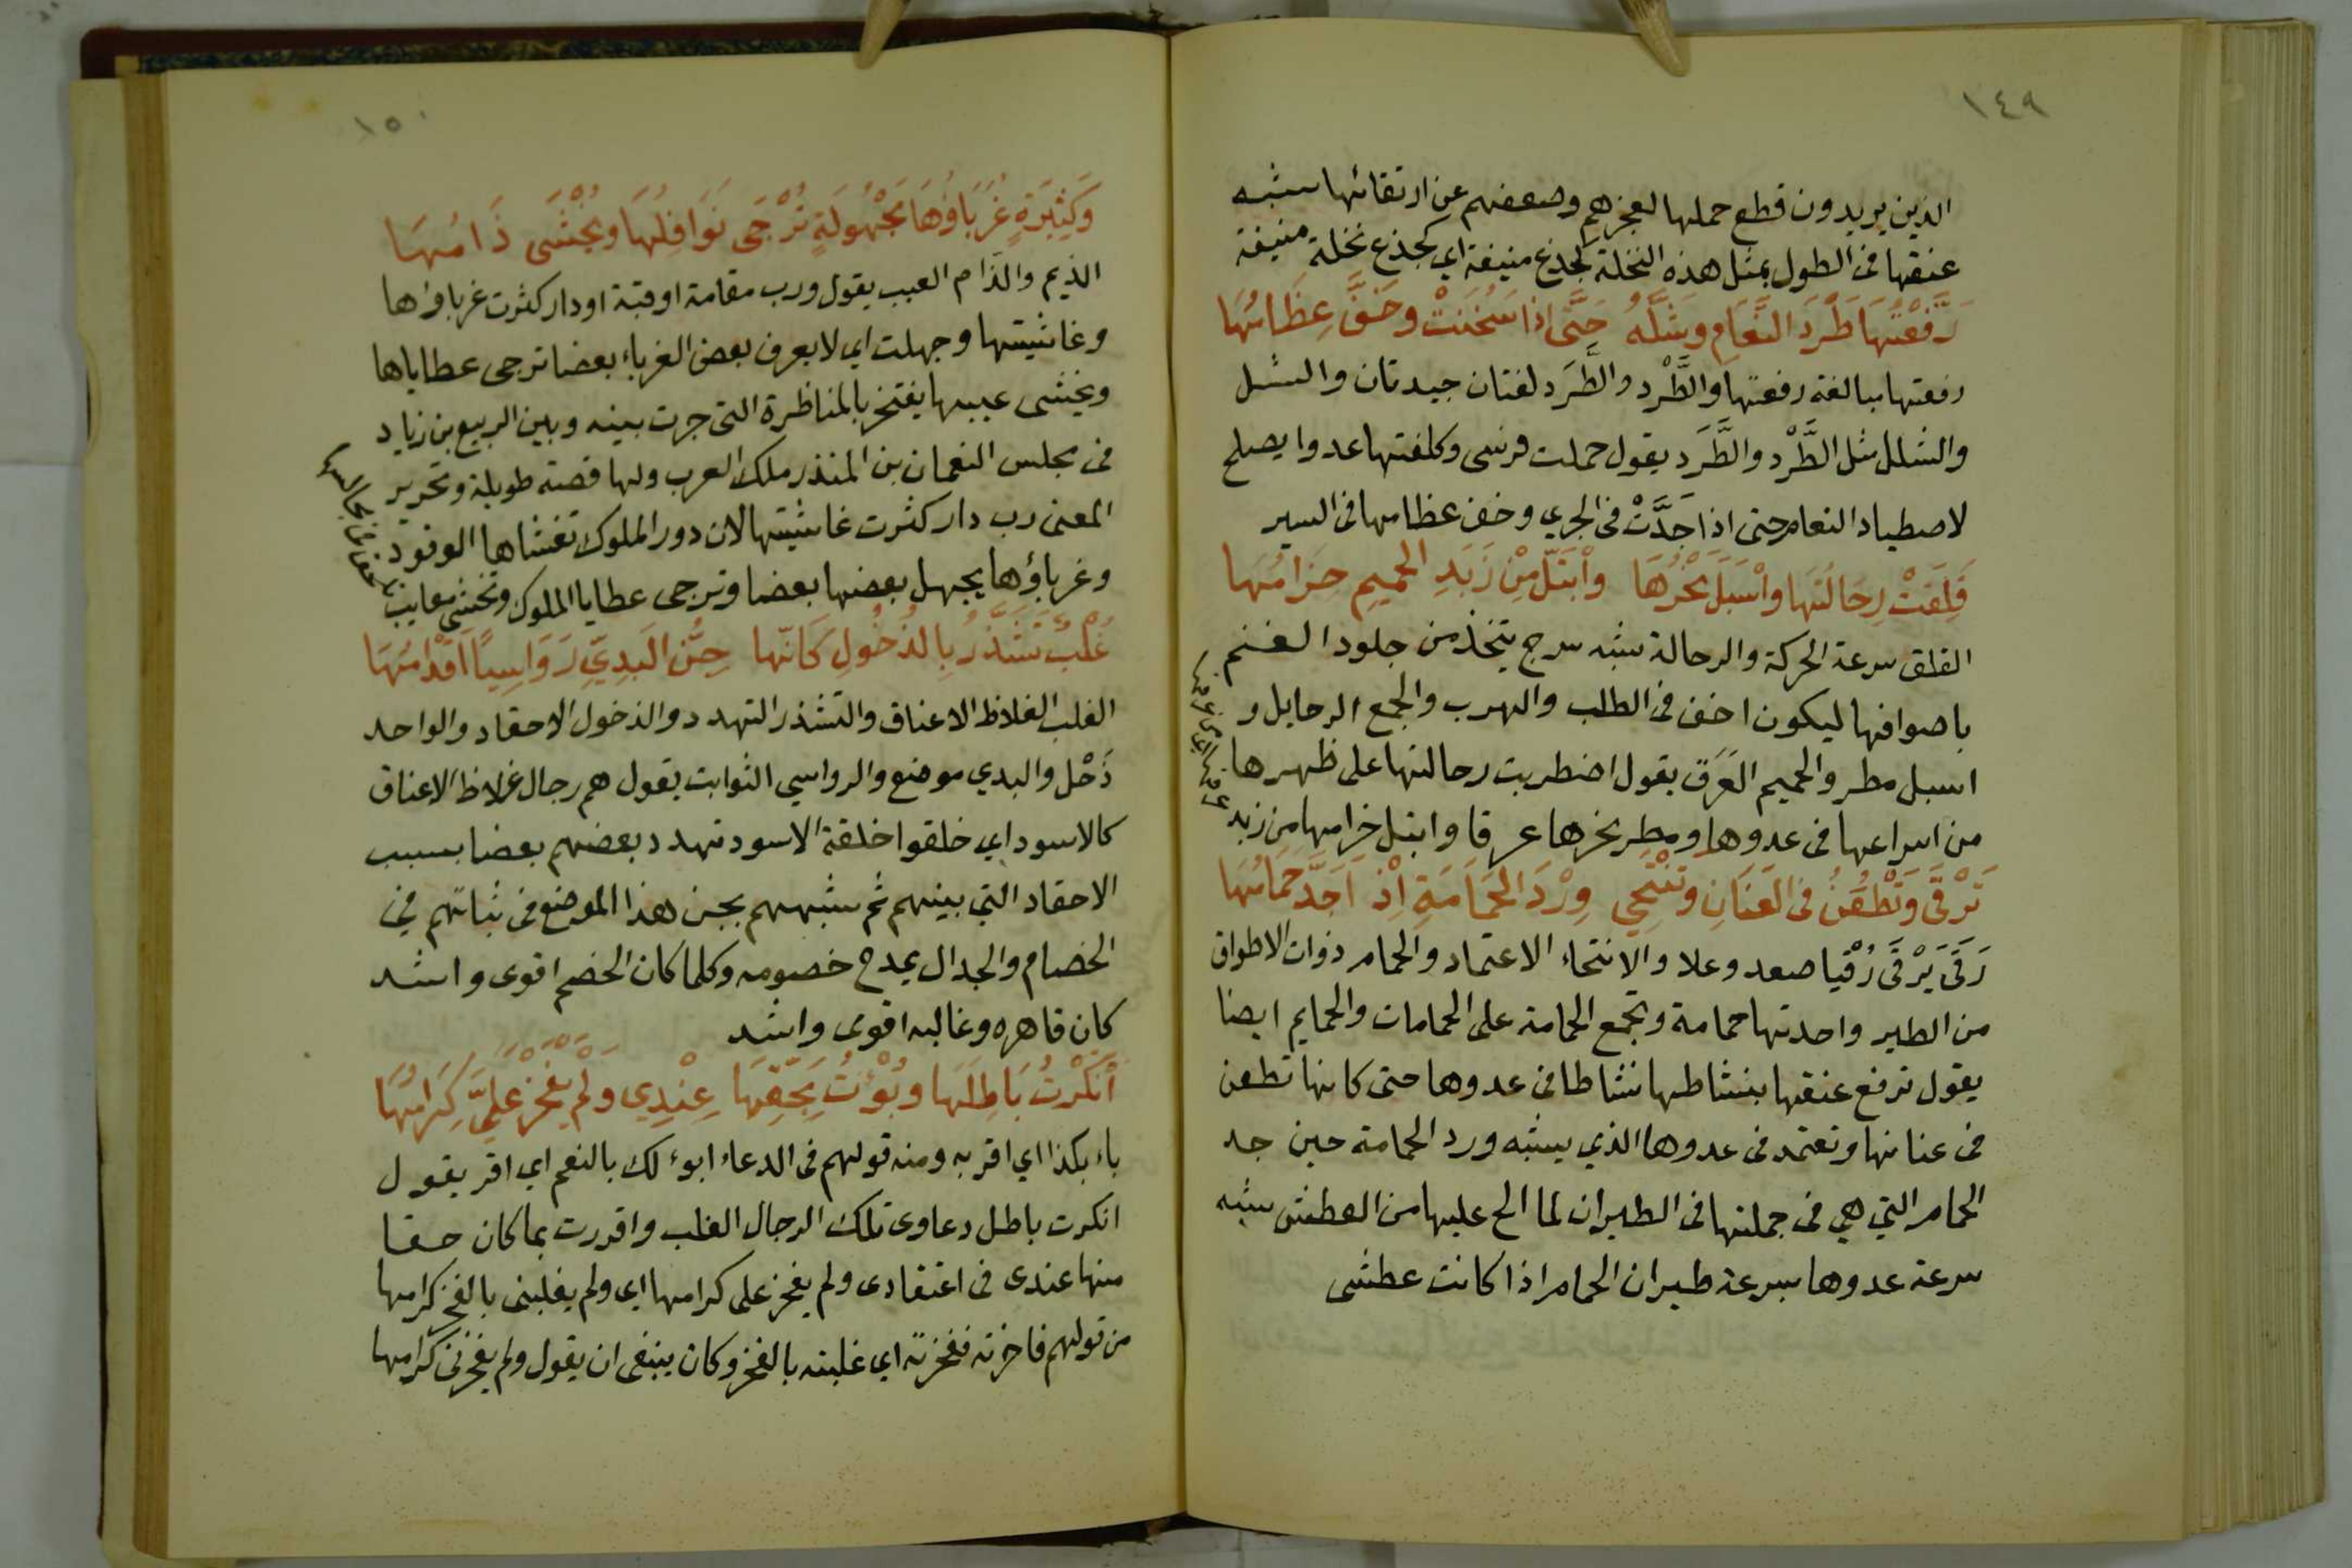 ١٤٩
الذين يريدون قطع حملها لعجزهم وضعفهم عن ارتقائها شبه
عنقها فى الطول بمثل هذه النخلة كجذع منيفة اي كجذع نخلة منيفة
رَفَّعْتُهَا طَرَدَ النَّعَامِ وَشَلَّهُ حَتَّى اِذَا سَخُنَتْ وخَفَّ عِظَامُهَا
رفعتها مبالغة رفعتها والطَّرْد والطَّرَد لغتان جيدتان والشل
والشلل مثل الطَّرْد والطَّرَد يقول حملت فرسى وكلفتها عدوا يصلح
لاصطياد النعام حتى اذا جَدَّتْ فى الجري وخف عظامها فى السير
قَلِقَتْ رِحَالَتُهَا واَسْبَلَ نَحْرُهَا وابْتَلَّ مِنْ زَبَدِ الحَمِيمِ حِزَامُهَا
القلق سرعة الحركة والرحالة شبه سرج يتخذ من جلود الغنم
باصوافها ليكون اخف فى الطلب والهرب والجمع الرحايل و
اسبل مطر والحميم العَرَق يقول اضطربت رحالتها على ظهرها
من اسراعها فى عدوها ومطر نحرها عرقا وابتل حزامها من زبد
تَرْقَى وَتَطْعُنُ فى العَنَانِ وتَنْتَحِي وِرْدَ الحَمَامَةِ اِذْ اَجَدَّ حَمَامُهَا
رَقَى يَرْقَى رُقْيا صعد وعلا والانتحاء الاعتماد والحمام ذوات الاطواق
من الطير واحدتها حمامة وتجمع الحمامة على الحمامات والحمايم ايضا
يقول ترفع عنقها بنشاطها نشاطا فى عدوها حتى كانها تطعن
فى عنانها وتعتمد فى عدوها الذي يشبه ورد الحمامة حين جد
الحمام التي هي فى جملتها فى الطيران لما الح عليها من العطش شبه
سرعة عدوها بسرعة طيران الحمام اذا كانت عطشى
١٥٠
وَكَثِيرَةٍ غُرَبَاؤُهَا مَجْهُولَةٍ تُرْجَى نَوَافِلُهَا ويُخْشَى ذَامُهَا
الذيم والذام العيب يقول ورب مقامة او قبة او دار كثرت غرباؤها
وغاشيتها وجهلت اي لا يعرف بعض الغرباء بعضا ترجى عطاياها
ويخشى عيبها يفتخر بالمناظرة التى جرت بينه وبين الربيع بن زياد
فى مجلس النعمان بن المنذر ملك العرب ولها قصة طويلة وتحرير
المعنى رب دار كثرت غاشيتها لان دور الملوك تغشاها الوفود
وغرباؤها يجهل بعضها بعضا وترجى عطايا الملوك وتخشى معايب
غُلْبٌ تَشَذَّرُ بِالذُّحُولِ كَاَنّهَا جِنُّ البَدِيِّ رَوَاسِيًا اَقْدَامُهَا
الغلب الغلاظ الاعناق والتشذر التهدد والذحول الاحقاد والواحد
ذَحْل والبدي موضع والرواسي الثوابت يقول هم رجال غلاظ الاعناق
كالاسود اي خلقوا خلقة الاسود تهدد بعضهم بعضا بسبب
الاحقاد التي بينهم ثم شبههم بجن هذا الموضع فى ثباتهم في
الخصام والجدال يمدح خصومه وكلما كان الخصم اقوى واشد
كان قاهره وغالبه اقوى واشد
اَنْكَرْتُ بَاطِلَهَا وبُؤْتُ بِحَقِّهَا عِنْدِي ولَمْ يَفْخَرْ عَلَيَّ كِرَامُهَا
باء بكذا اي اقر به ومنه قولهم فى الدعاء ابوء لك بالنعم اي اقر يقول
انكرت باطل دعاوى تلك الرجال الغلب واقررت بما كان حقا
منها عندى فى اعتقادى ولم يفخر على كرامها اى ولم يغلبنى بالفخر كرامها
من قولهم فاخرته ففخرته اى غلبته بالفخر وكان ينبغى ان يقول ولم يفخرنى كرامها